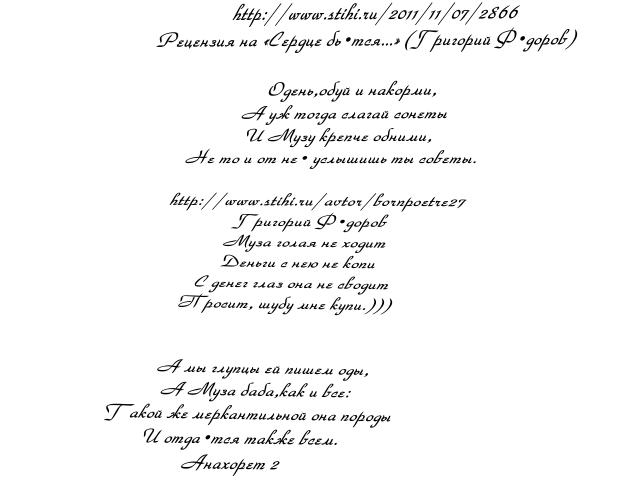 http://www.stihi.ru/2011/11/07/2866
Рецензия на «Сердце бь•тся...» (Григорий Ф•доров)
Одень,обуй и накорми,
А уж тогда слагай сонеты
И Музу крепче обними,
Не то и от не• услышишь ты советы.
http://www.stihi.ru/avtor/bornpoetre27
Григорий Ф•доров
Муза голая не ходит
Деньги с нею не копи
С денег глаз она не сводит
Просит, шубу мне купи.)))
А мы глупцы ей пишем оды,
А Муза баба,как и все:
Такой же меркантильной она породы
И отда•тся также всем.
Анахорет 2